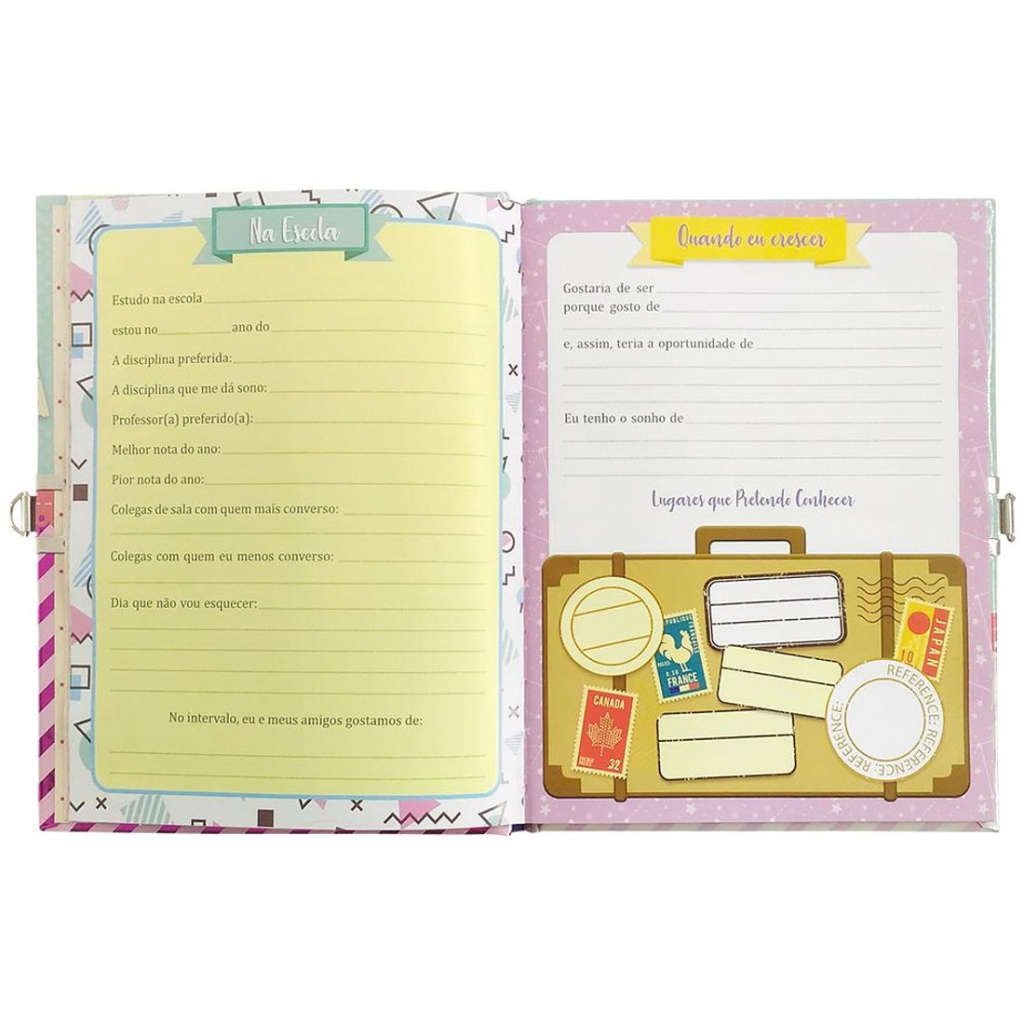 Na Escola
Estudo na escola
estou no ano do
A disciplina preferida:
A disciplina que me dá sono:
Professor(a) preferido(a):
Melhor nota do ano:
Pior nota do ano:
Colegas de sala com quem mais converso:
Colegas com quem eu menos converso:
Dia que não vou esquecer:
No intervalo, eu e meus amigos gostamos de:
Quando eu crescer
Gostaria de ser
porque gosto de
e, assim, teria a oportunidade de
Eu tenho o sonho de
Lugares que Pretendo Conhecer
FRANCE
CANADA
32
JAPAN
10
REFERENCE: REFERENCE: REFERENCE: